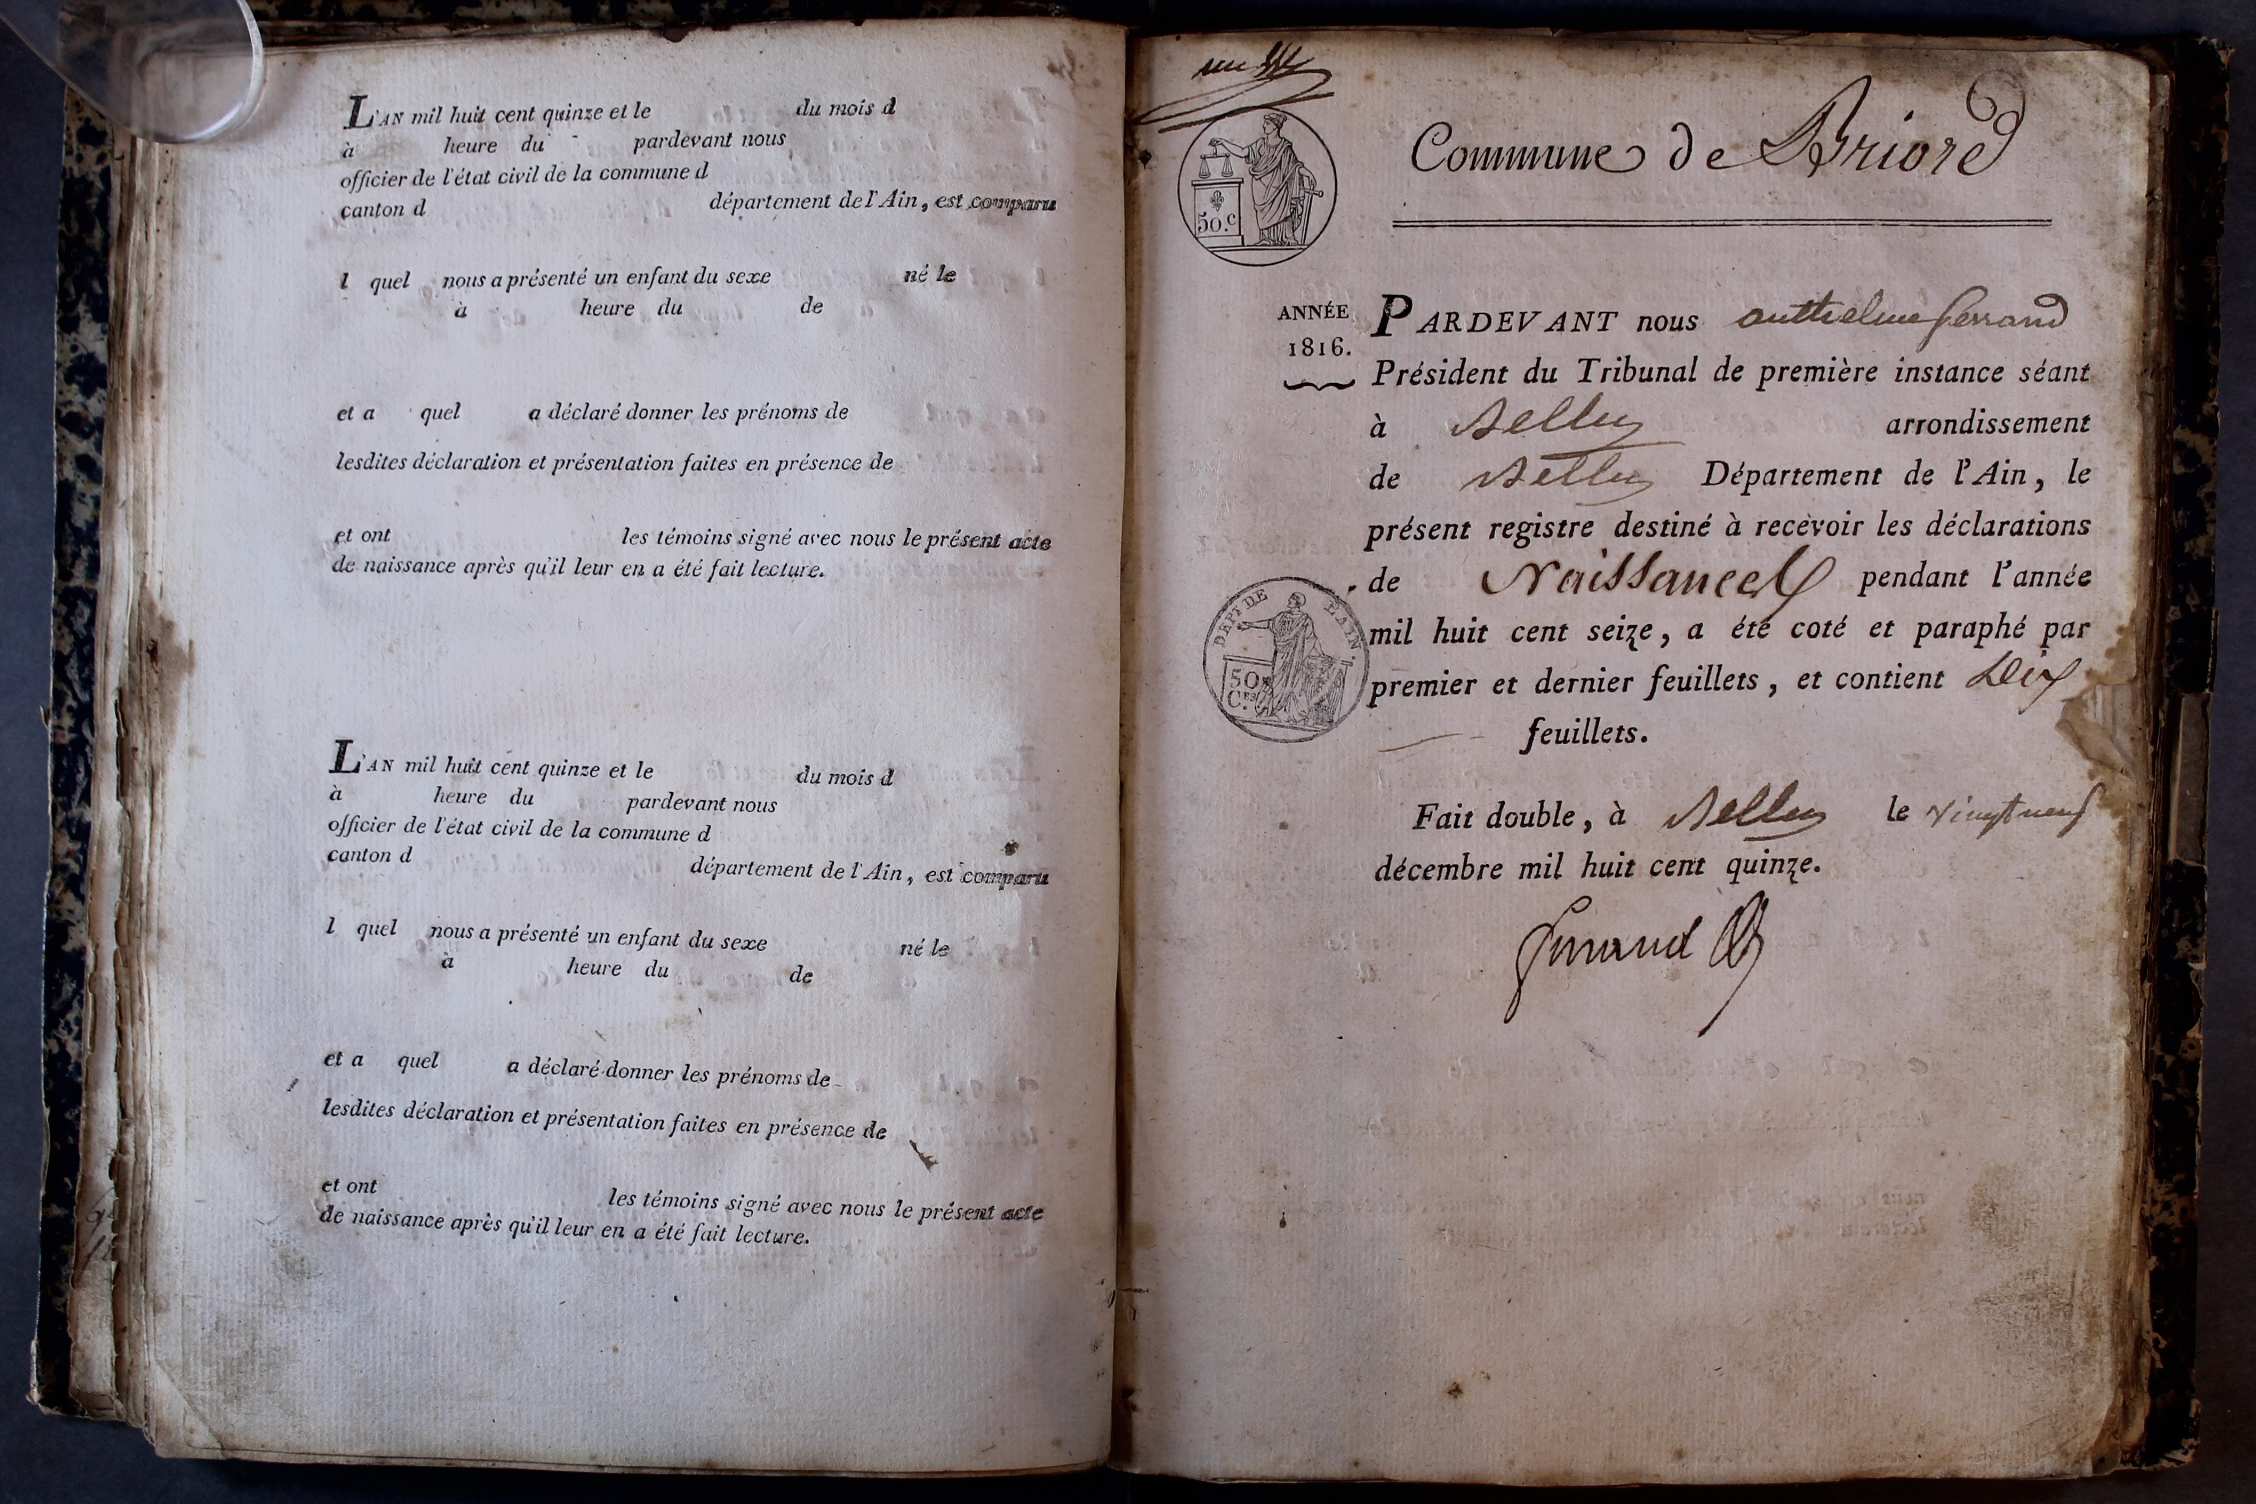 L'AN mil huit cent quinze et le du mois d
à heure du pardevant nous
officier de l'état civil de la commune d
canton d département de l'Ain, est comparu
l quel nous a présenté un enfant du sexe né le
à heure du de
et a quel a déclaré donner les prénoms de
lesdites déclaration et présentation faites en présence de
et ont les témoins signé avec nous le présent acte
de naissance après qu'il leur en a été fait lecture.
L'AN mil huit cent quinze et le du mois d
à heure du pardevant nous
officier de l'état civil de la commune d
canton d département de l'Ain, est comparu
l quel nous a présenté un enfant du sexe né le
à heure du de
et a quel a déclaré donner les prénoms de
lesdites déclaration et présentation faites en présence de
et ont les témoins signé avec nous le présent acte
de naissance après qu'il leur en a été fait lecture.
50.c
Commune de Briord
ANNÉE
1816.
PARDEVANT nous anthelme ferrand
Président du Tribunal de première instance séant
à Belley arrondissement
de Belley Département de l'Ain, le
présent registre destiné à recevoir les déclarations
de Naissances pendant l'année
DEPT DE L'AIN.
50
C.es
mil huit cent seize, a été coté et paraphé par
premier et dernier feuillets, et contient Dix
feuillets.
Fait double, à Belley le vingt neuf
décembre mil huit cent quinze.
ferrand